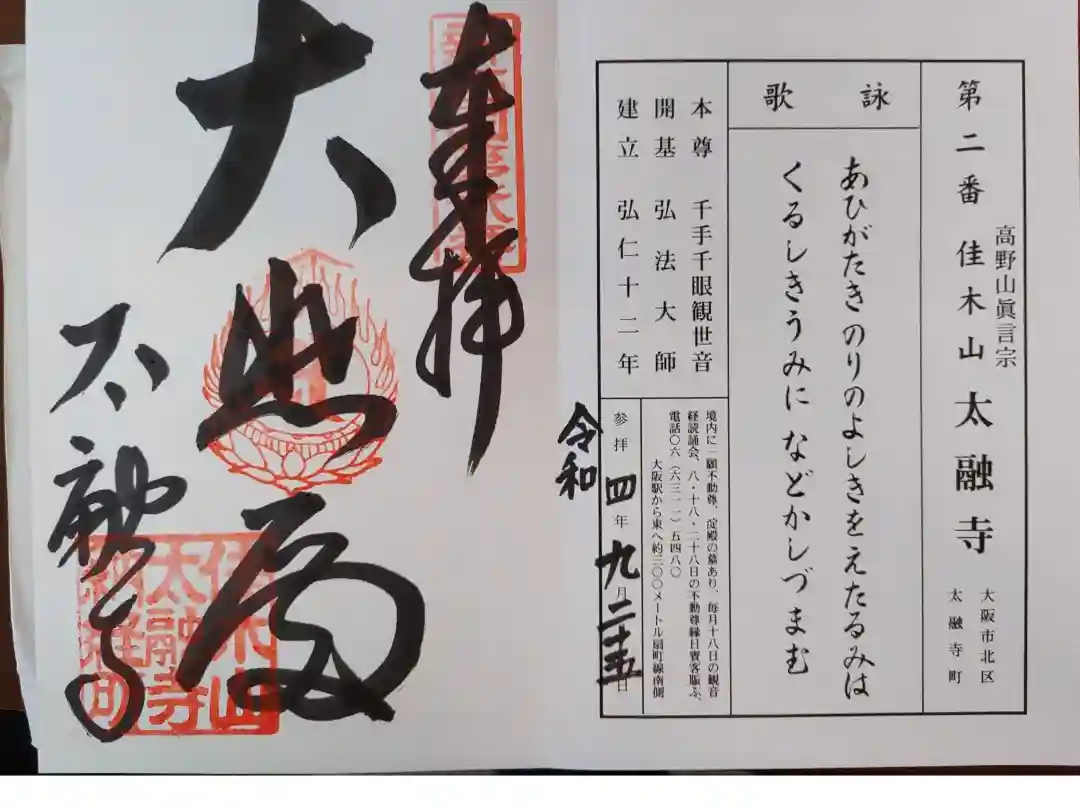 高野山眞言宗
第二番 佳木山 太融寺
大阪市北区
太融寺町
詠歌
あひがたき のりのよしきをえたるみは
くるしきうみに などかしづまむ
本尊 千手千眼観世音
開基 弘法大師
建立 弘仁十二年
境内に一願不動尊、淀殿の墓あり、毎月十八日の観音
経読誦会、八・十八・二十八日の不動尊縁日賓客賑ぶ、
電話〇六(六三一一)五四八〇
大阪駅から東へ約三〇〇メートル扇町線南側
参拝 令和四年九月二十五日
奉拝
大悲殿
太融寺
佳木山
太融寺